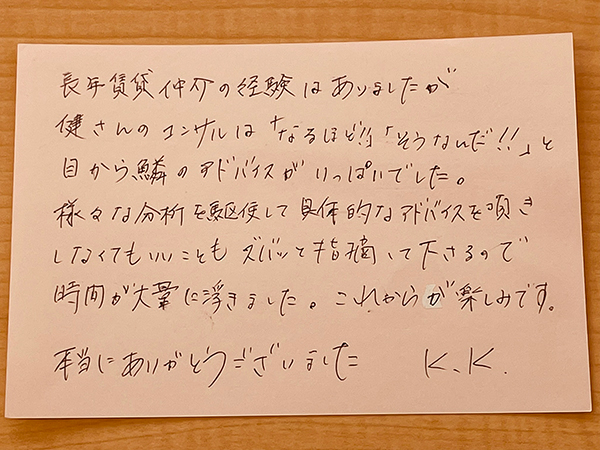 長年賃貸仲介の経験はありましたが
健さんのコンサルは「なるほど!!」「そうなんだ!!」と
目から鱗のアドバイスがいっぱいでした。
様々な分析を駆使して具体的なアドバイスを頂き
しなくてもいいこともズバッと指摘して下さるので
時間が大量に浮きました。これからが楽しみです。
本当にありがとうございました K.K.